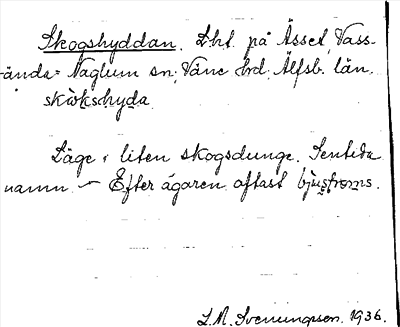 Skogshyddan. Lht. på Åsset, Vass-
ända. Naglum sn. Väne hd. Älfsb. län.
skòkshyda
Läge i liten skogsdunge. Sentida
namn. — Efter ägaren oftast bjustroms.
S. A. Svenungsson. 1936.